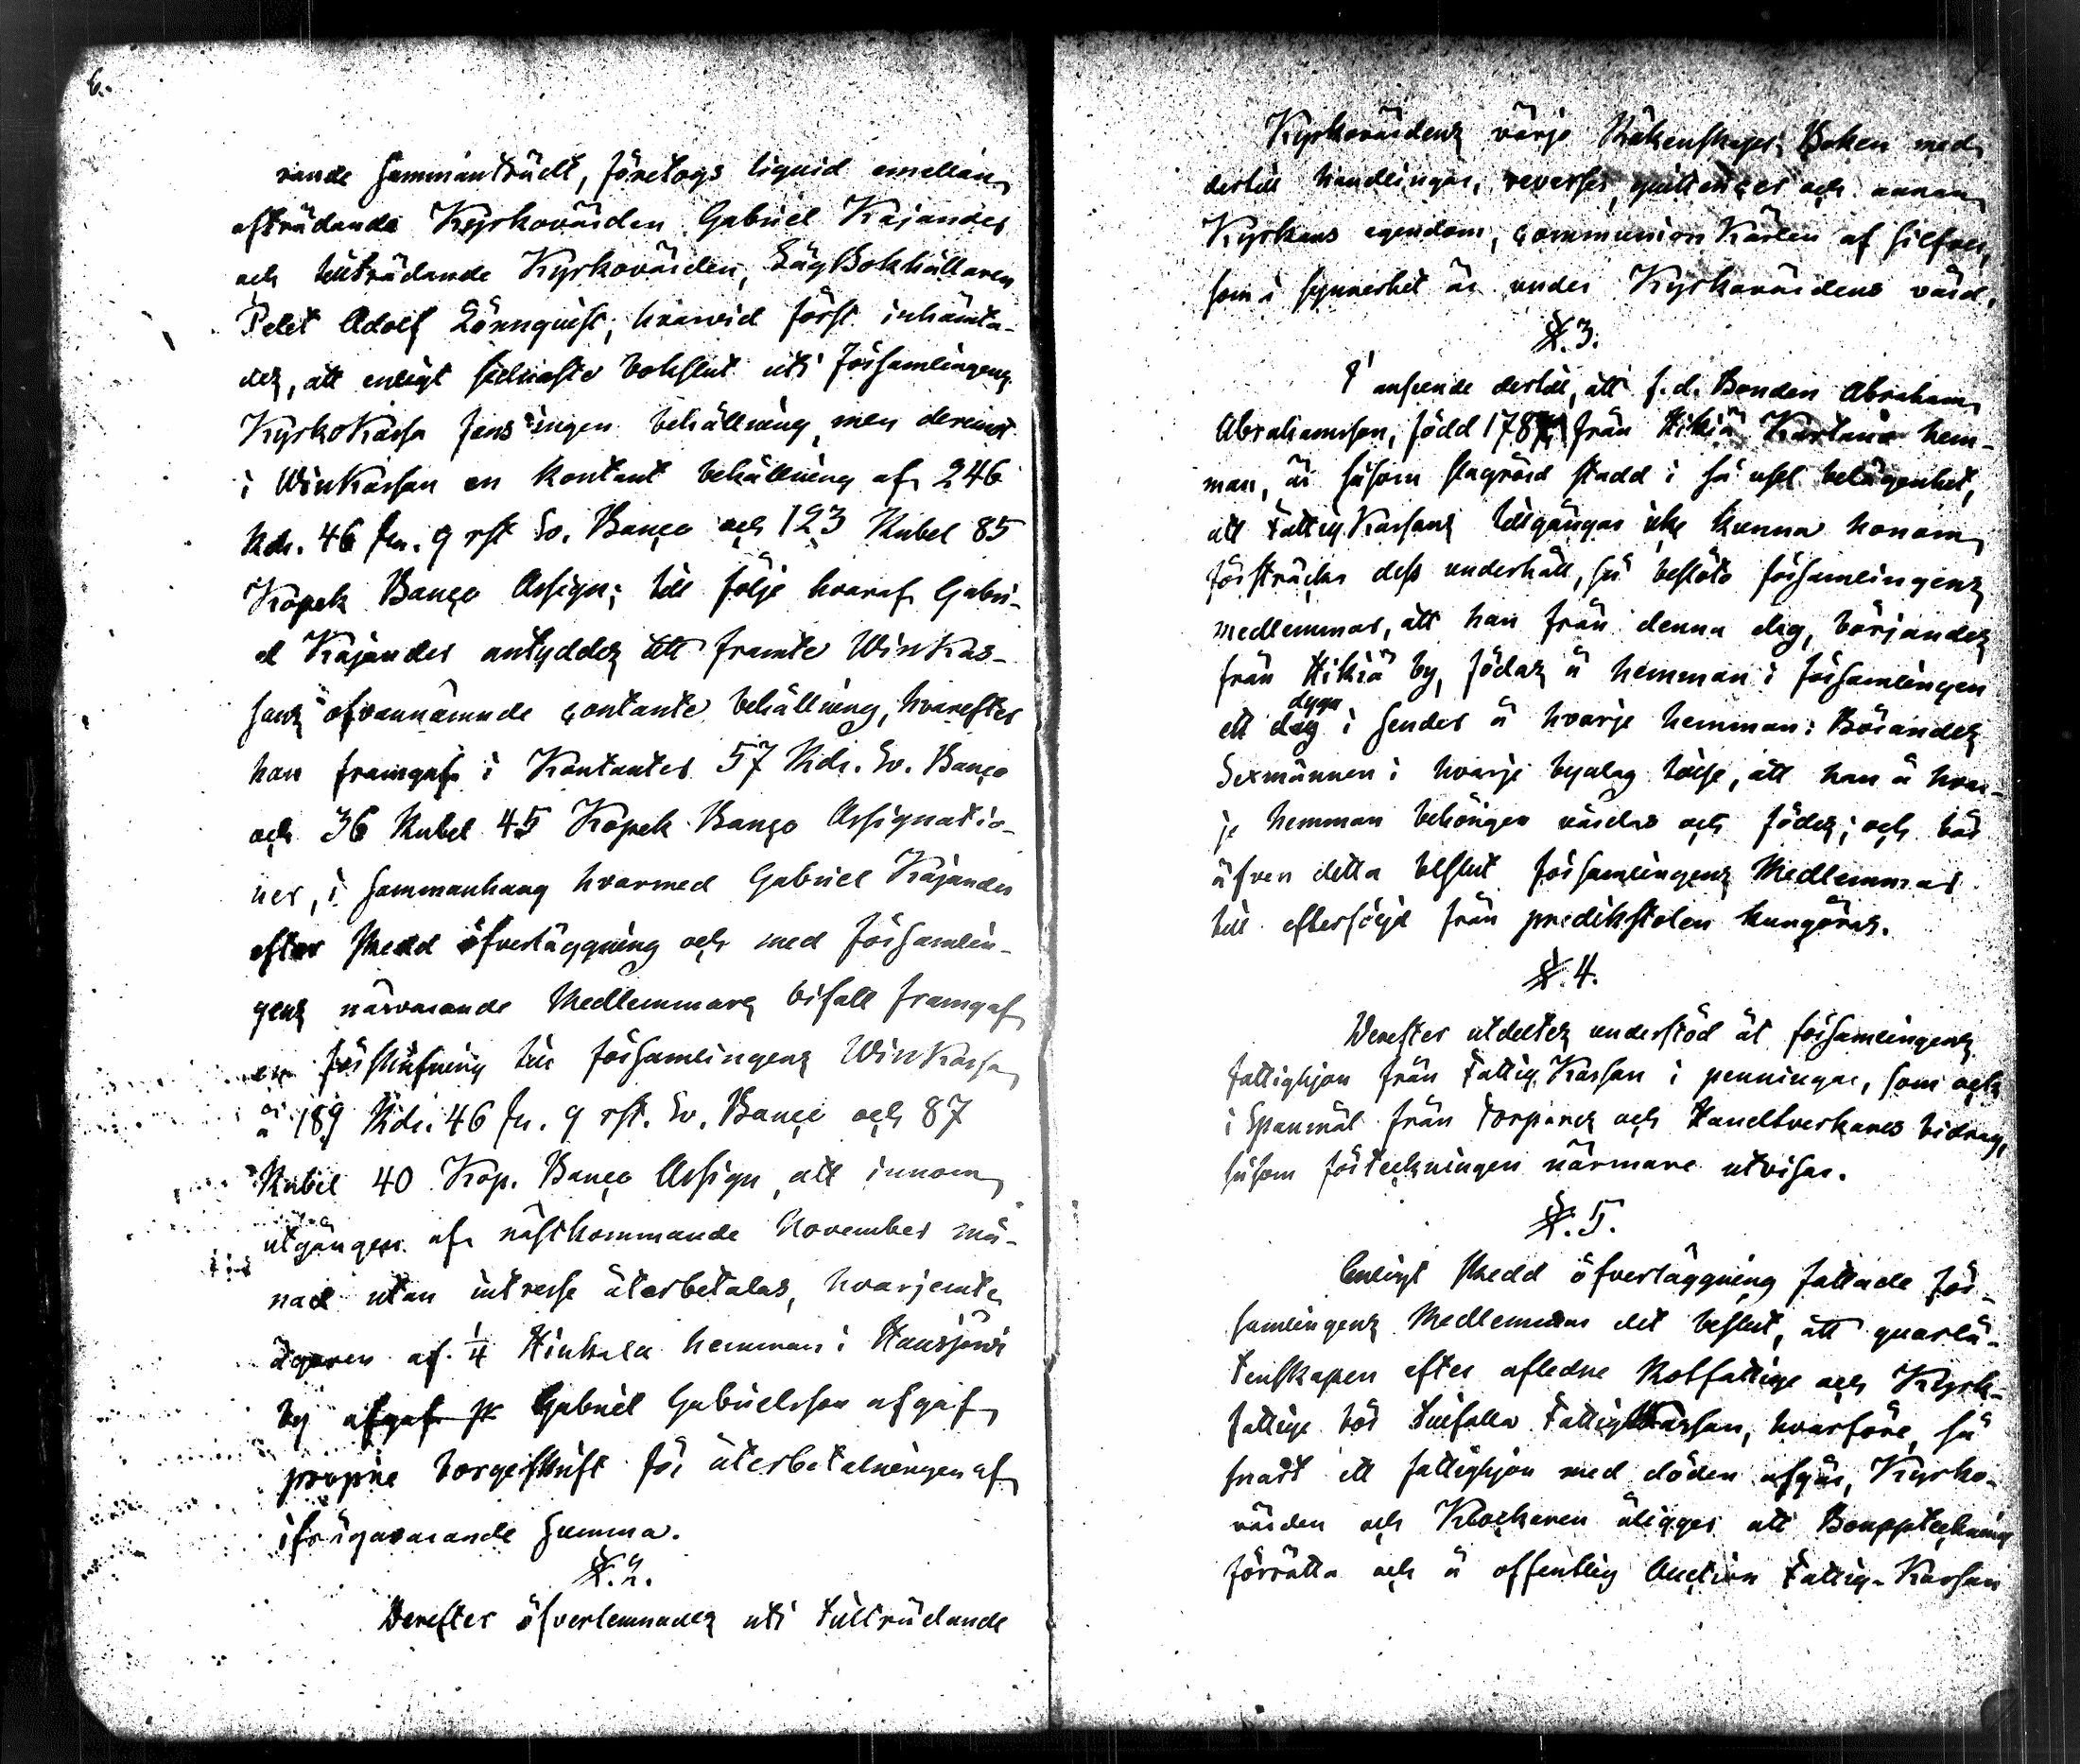 6.
rande sammanträdt, företogs liquid emellan
afträdande Kyrkovärden Gabriel Kajander
och tillträdande Kyrkovärden, SågBokhållaren
Petet Adolf Lönnquist, hvarvid först inhämta-
des, att enligt sednaste bokslut uti Församlingens
KyrkoKassa fans ingen behållning, men deremot
i WinKassan en kontant behållning af 246
Rdr. 46 sk. 9 rst Sv. Banco och 123 Rubel 85
Kopek Banco Assign; till följe hvaraf Gabri-
el Kajander antyddes att framte WinKas-
sans ofvannämnde contante behållning, hvarefter
han framgaf i Kontanter 57 Rdr. Sv. Banco
och 36 Rubel 45 Kopek Banco Assignatio-
ner, i sammanhang hvarmed Gabriel Kajander
efter skedd öfverläggning och med församlin-
gens närvarande Medlemmars bifall framgaf
en förskrifning till församlingens WinKassa
å 189 Rdr. 46 sk. 9 rst. Sv. Banco och 87
Rubel 40 Kop. Banco Assign, att innom
utgången af nästkommande November må-
nad utan intresse återbetalas, hvarjemte
ägaren af 1/4 Hinkala hemman i Hausjärvi
by afgaf Gabriel Gabrielsson afgaf
proprie borgeskrift för återbetalningen af
ifrågavarande summa.
§. 2.
Derefter öfverlemnades uti tillträdande
Kyrkovärdens värjo Räkenskaps Boken med
dertill handlingar, reverser, quittencer och annan
Kyrkans egendom, communion Kärlen af silfver,
som i synnerhet är under Kyrkovärdens vård.
§. 3.
I anseende dertill, att f. d. Bonden Abraham
Abrahamsson, född 178 från Hikiä Kartano hem-
man, är såsom slagrörd stadd i så usel belägenhet,
att FattigKassans tillgångar icke kunna honom
försträcka dess underhåll, så beslöto församlingens
medlemmar, att han från denna dag, börjandes
från Hikiä by, födas å hemman i församlingen
dygn
ett dag i sender å hvarje hemman: Börandes
Sexmännen i hvarje byalag tillse, att han å hvar-
je hemman behörigen vårdas och födes; och bör
äfven detta beslut församlingens Medlemmar
till efterföljd från predikstolen kungöras.
§. 4.
Derefter utdeltes understöd åt församlingens
fattighjon från FattigKassan i penningar, som och
i Spanmål från Torpares och Handtverkares bidrag,
såsom förteckningen närmare utvisar.
§. 5.
Enligt skedd öfverläggning fattade För-
samlingens Medlemmar det beslut, att quarlå-
tenskapen efter afledne Rotfattige och Kyrk-
fattige bör tillfalla FattigKassan, hvarföre, så
snart ett fattighjon med döden afgår, Kyrko-
värden och Klockaren åligger att Bouppteckning
förrätta och å offentlig Auction Fattig-Kassan